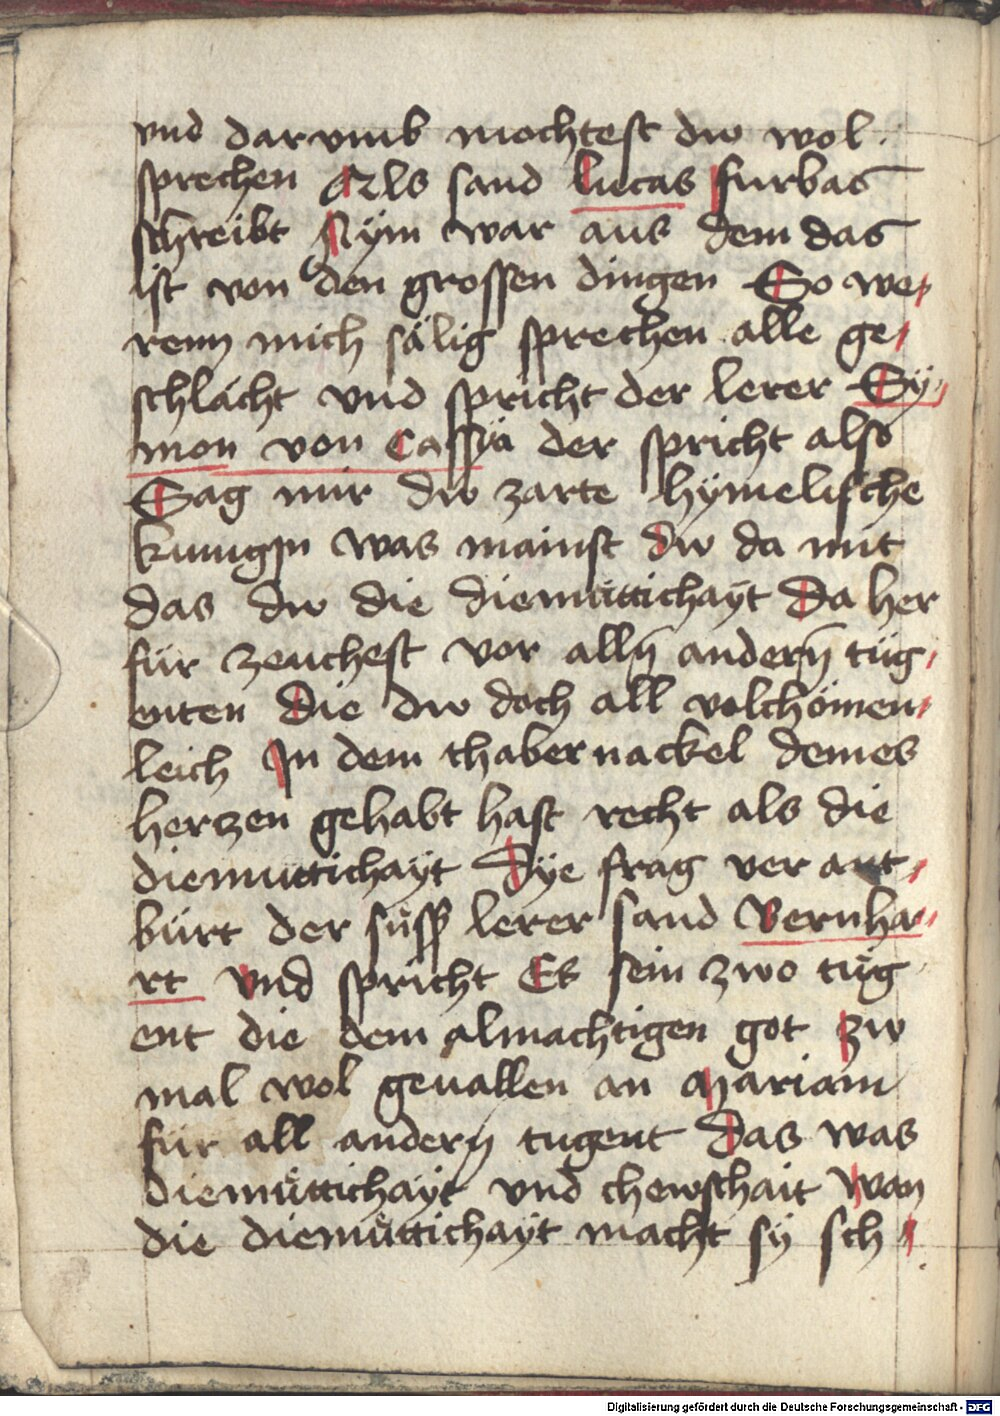 vnd darvmb mochtest dw wol
sprechen Als sand lucas furbas
schreibt Nym war aus dem das
ist von den grossen dingen So we
renn mich sälig sprechen alle ge
schlächt vnd spricht der lerer Sÿ
mon von Cassÿa der spricht also
Sag mir dw zarte hÿmelische
kunigin was mainst dw da mit
das dw die diemüttichaÿt Da her
für zeuchest vor alln̄ andern̄ tüg
enten Die dw doch all volchömen
leich In dem thabernackel deines
hertzen gehabt hast recht als die
diemüttichaÿt Dÿe frag ver ant
bürt der süssz lerer sand Bernha
rt Vnd spricht Es sein zwo tüg
ent die dem almachtigen got zw
mal wol geuallen an Mariam
für all andern tugent Das was
diemüttichaÿt vnd chewschait Wan
die diemüttichaÿt macht sÿ sch
Digitalisierung gefördert durch die Deutsche Forschungsgemeinschaft - DFG